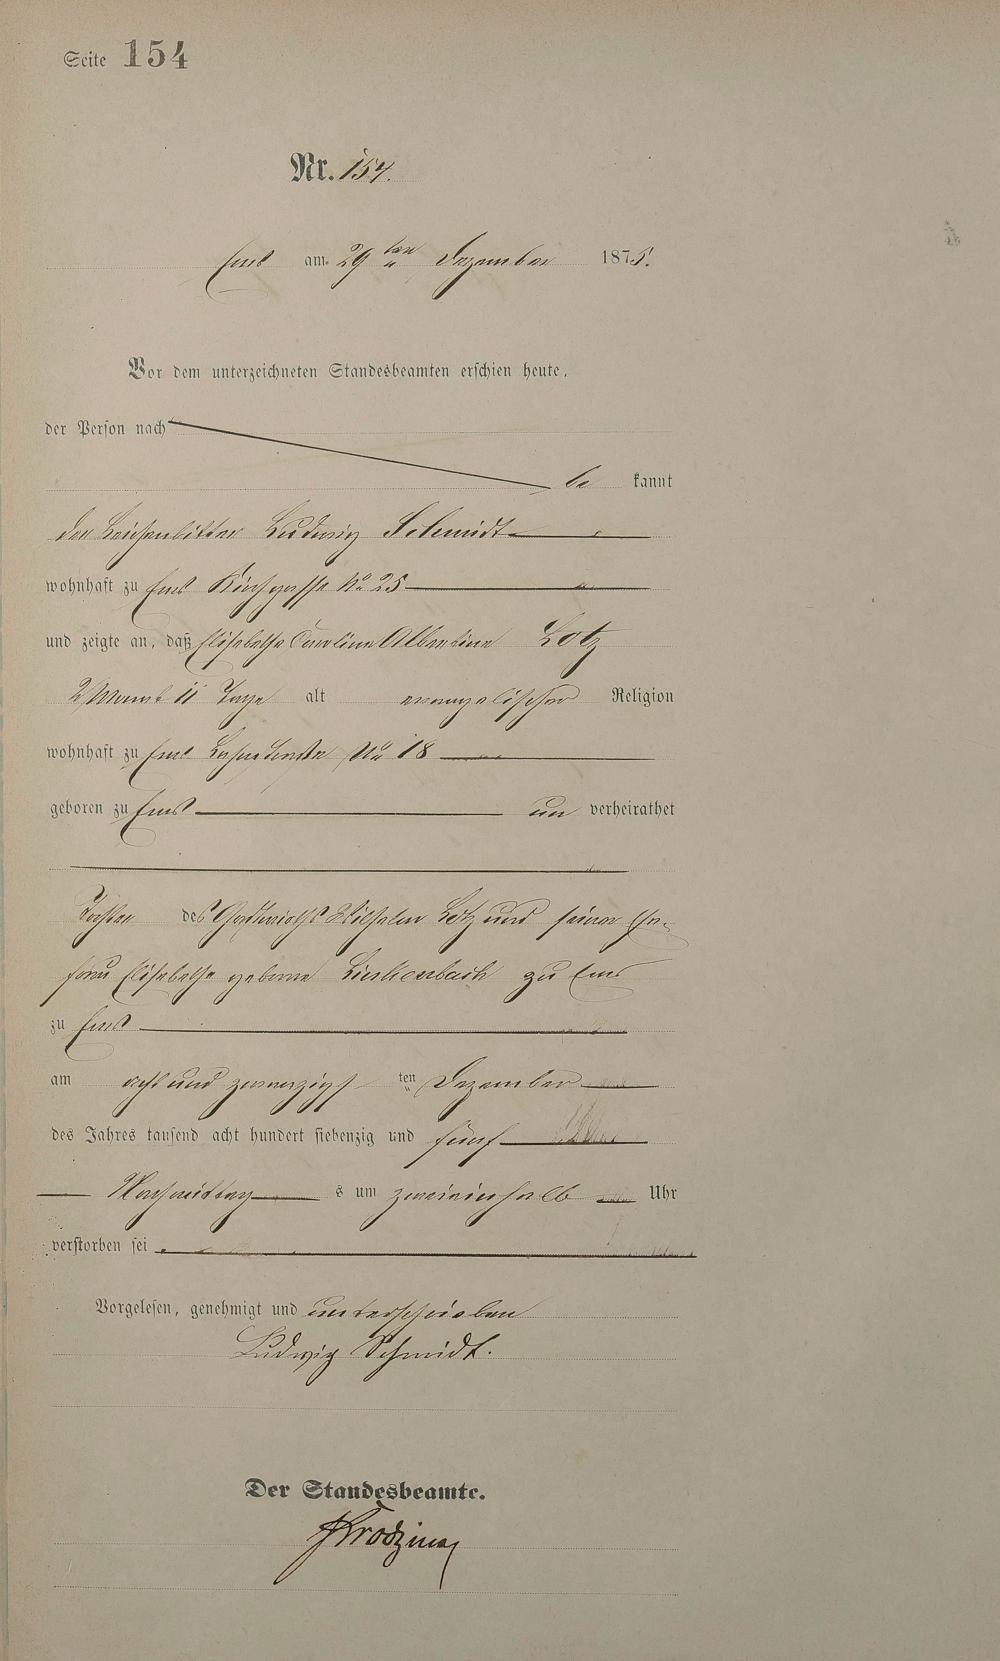 Seite 154
Nr. 154.
Ems am 29 ten Dezember 1875.
Vor dem unterzeichneten Standesbeamten erschien heute,
der Person nach
be kannt
der Leichenbitter Ludwig Schmidt
wohnhaft zu Ems Kirchgasse No 25
und zeigte an, daß Elisabetha Caroline Albertine Lotz
2 Monat 11 Tage alt evangelischer Religion
wohnhaft zu Ems No 18
geboren zu Ems un verheirathet
Tochter des Gastwirths Wilhelm Lotz und seiner Ehe-
frau Elisabetha geborne Linkenbach zu Ems
zu Ems
am acht und zwanzigs ten Dezember
des Jahres tausend acht hundert siebenzig und fünf
Nachmittag s um zweieinhalb Uhr
verstorben sei
Vorgelesen, genehmigt und unterschrieben
Ludwig Schmidt.
Der Standesbeamte.